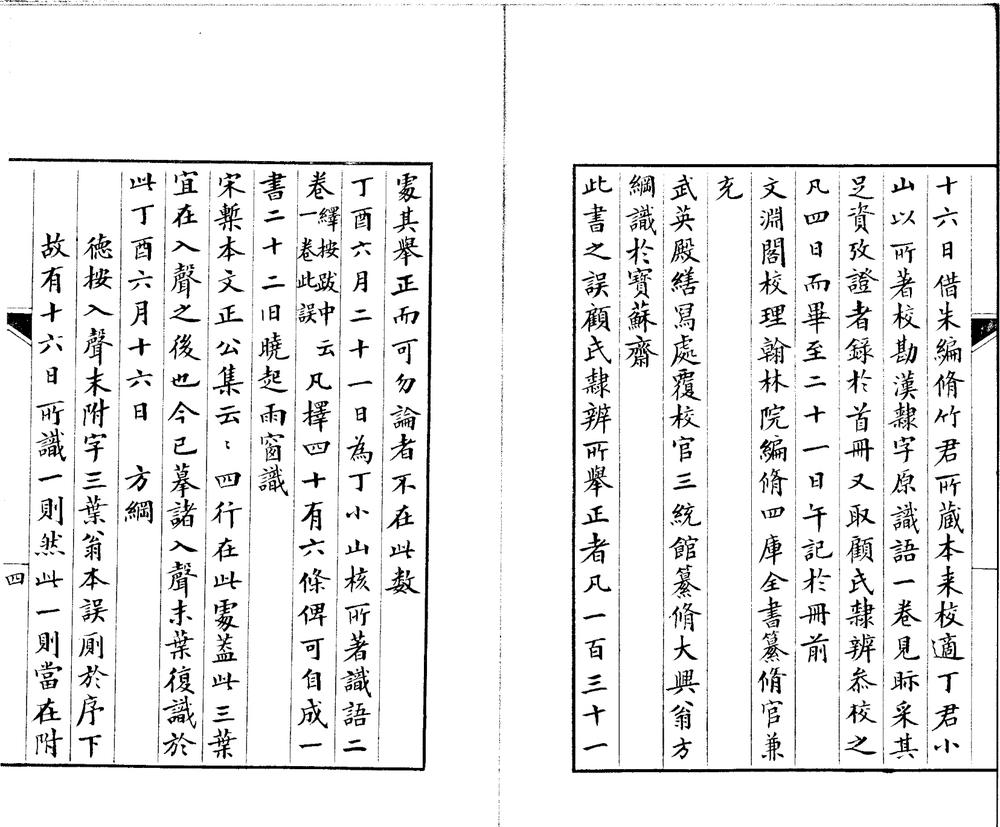 十六日借朱編脩竹君所藏本来校適丁君小
山以所著校勘漢隸字原識語一卷見眎采其
足資攷證者錄於首冊又取顧氏隸辨叅校之
凡四日而畢至二十一日午記於冊前
文淵閣校理翰林院編脩四庫全書纂脩官兼
充
武英殿繕寫處覆校官三統館纂脩大興翁方
綱識於寶蘇齋
此書之誤顧氏隸辨所舉正者凡一百三十一
處其舉正而可勿論者不在此数
丁酉六月二十一日為丁小山核所著識語二
卷繹按跋中一卷此誤云凡擇四十有六條俾可自成一
書二十二旧曉起雨窗識
宋槧本文正公集云〻四行在此處葢此三葉
宜在入聲之後也今已摹諸入聲末葉復識於
此丁酉六月十六日 方綱
德按入聲末附字三葉翁本誤厠於序下
故有十六日所識一則然此一則當在附
四